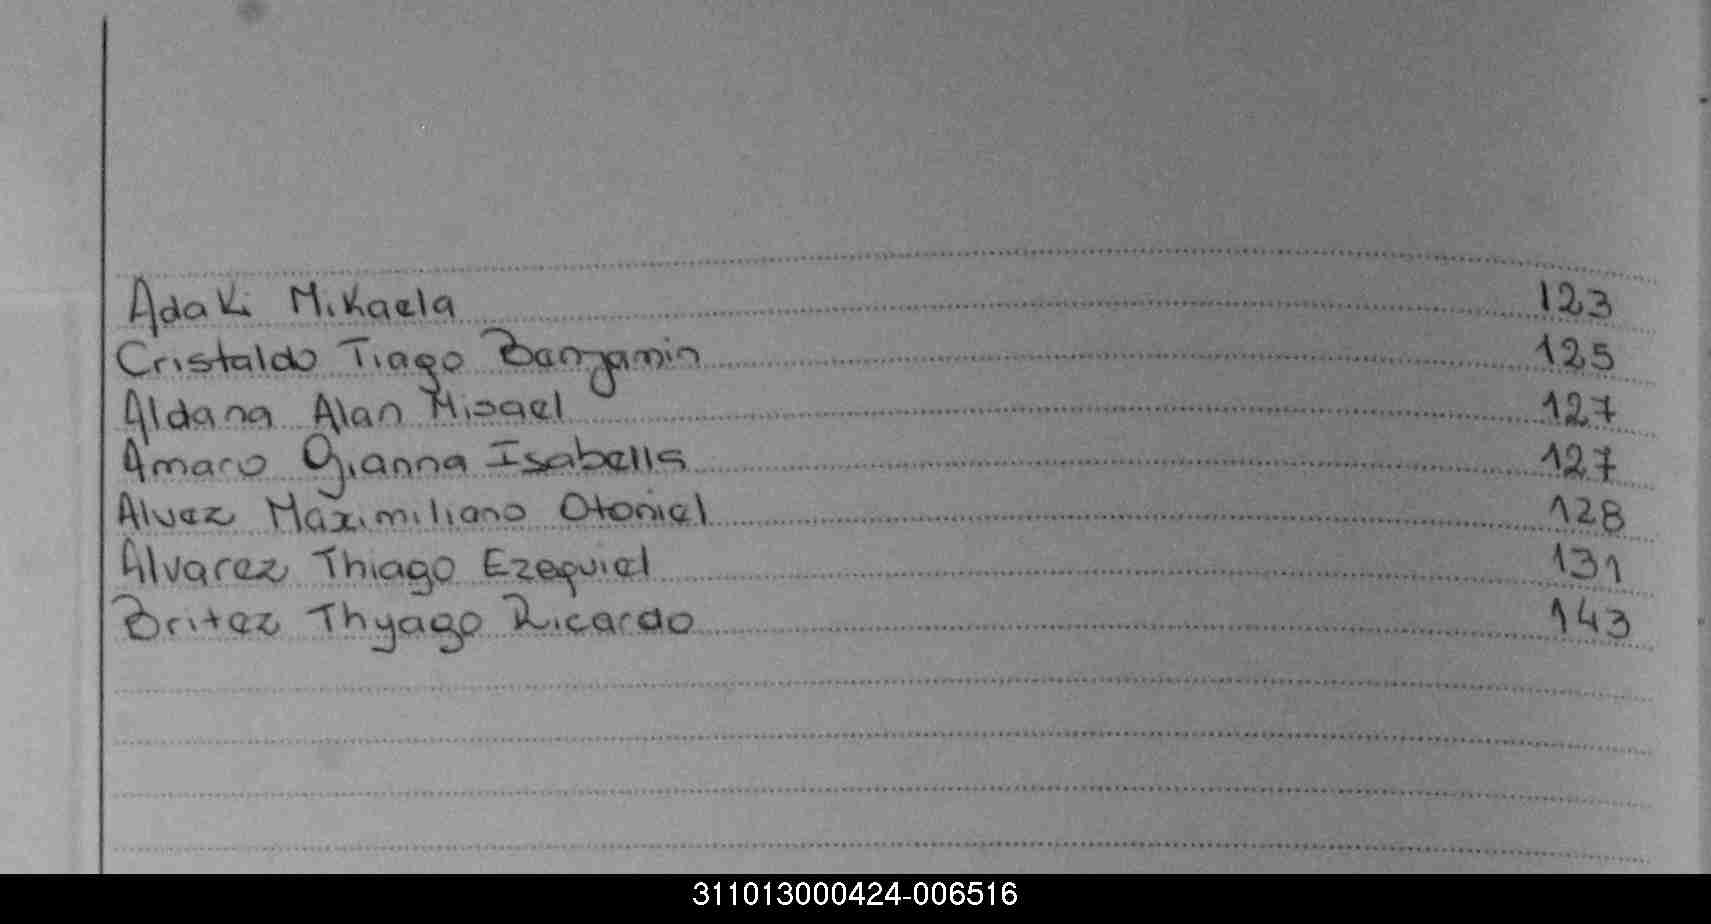 Adaki Mikaela 123
Cristaldo Tiago Benjamin 125
Aldana Alan Misael 127
Amaro Gianna Isabella 127
Alvez Maximiliano Otoniel 128
Alvarez Thiago Ezequiel 131
Britez Thyago Ricardo 143
311013000424-006516